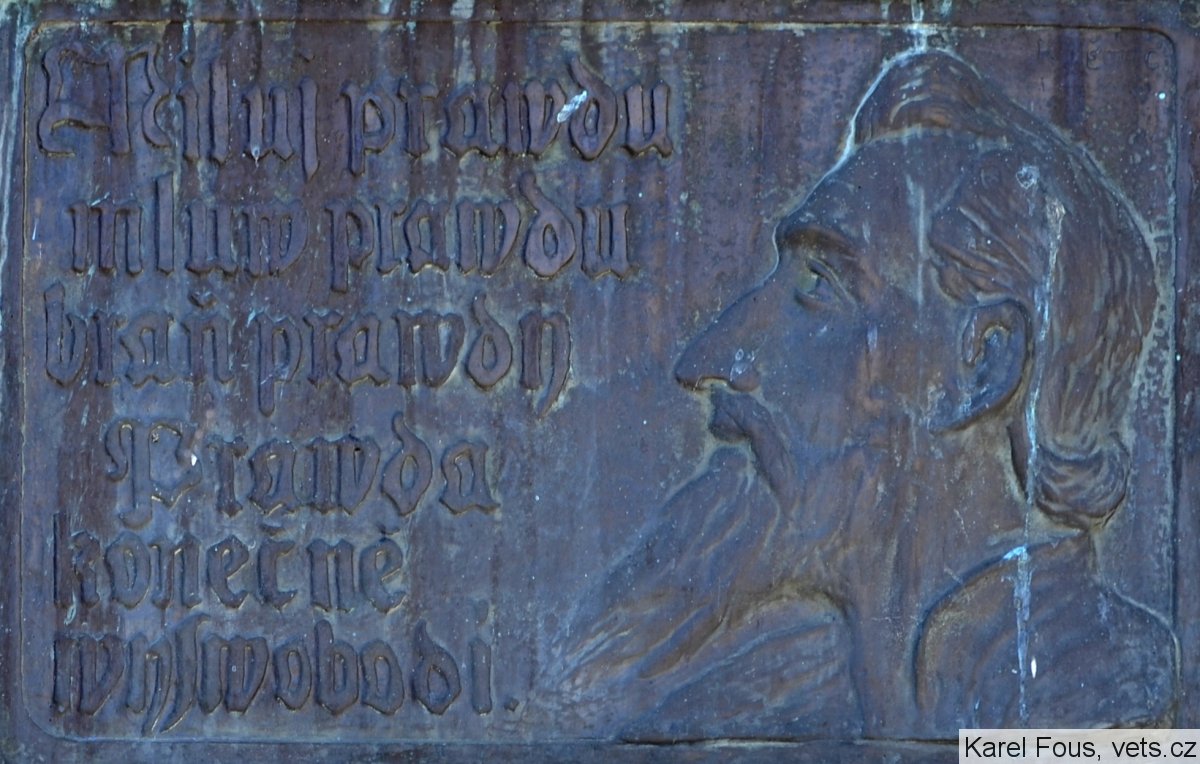 Miluj prawdu
mluw prawdu
braň prawdy
Prawda
konečně
wyswobodi.
Karel Fous, vets.cz